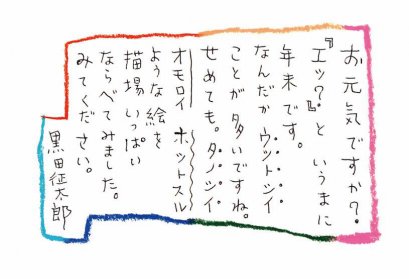 お元気ですか？.
『エッ？』と いうまに
年末です。
なんだか ウットシイ
ことが 多いですね。
せめても。タノシイ
オモロイ ホットスル
ような絵を
描場 いっぱい
ならべてみました。
みてください。
黒田征太郎